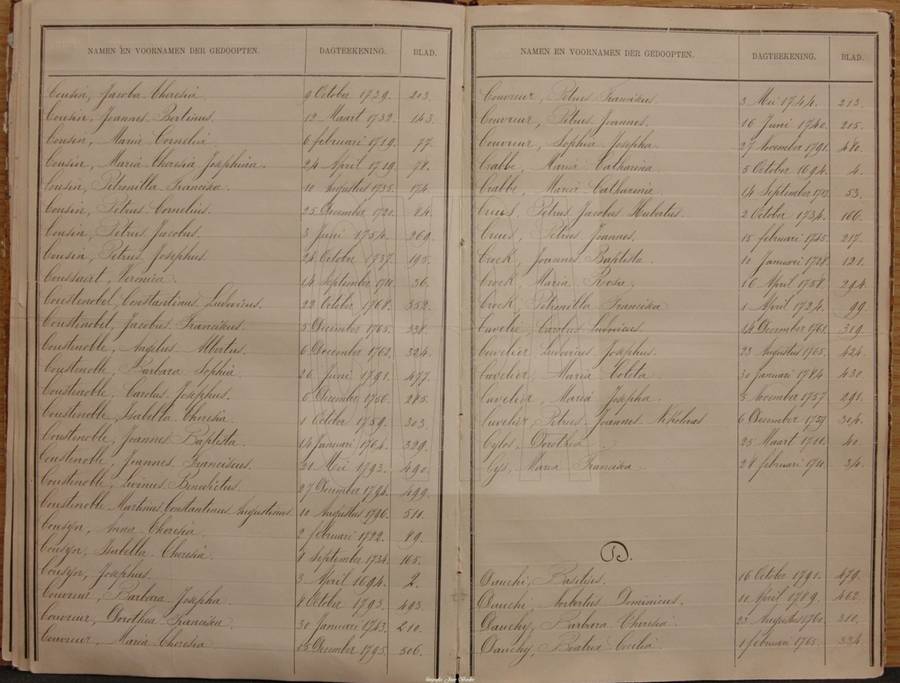 NAMEN EN VOORNAMEN DER GEDOOPTEN. DAGTEEKENING. BLAD.
Cousin, Jacoba Theresia 9 October 1729. 203.
Cousin, Joannes Bertinus. 12 Maart 1732. 143.
Cousin, Maria Cornelia 6 februari 1719. 77.
Cousin, Maria Theresia Josephina. 24 April 1719. 78.
Cousin, Petronilla Francisca. 10 Augustus 1735. 174.
Cousin, Petrus Cornelius. 25 December 1720. 84.
Cousin, Petrus Jacobus. 3 Juni 1754. 269.
Cousin, Petrus Josephus. 24 October 1737. 195.
Coussaert, Veronica. 14 September 1710. 36.
Coustenobel, Constantinus Ludovicus. 22 October 1768. 352.
Coustenobel, Jacobus Franciscus. 5 December 1765. 338.
Coustenoble, Angelus Albertus. 6 December 1762. 324.
Coustenoble, Barbara Sophia. 26 Juni 1791. 477.
Coustenoble, Carolus Josephus. 6 December 1756. 285.
Coustenoble, Isabella Theresia. 1 October 1759. 303.
Coustenoble, Joannes Baptista. 14 Januari 1764. 329.
Coustenoble, Joannes Franciscus. 21 Mei 1793. 490.
Coustenoble, Livinus Benedictus. 27 December 1794. 499.
Coustenoble Martinus Constantinus Augustinus. 10 Augustus 1796. 511.
Cousyn, Anna Theresia. 2 februari 1722. 89.
Cousyn, Isabella Theresia. 8 September 1734. 165.
Cousyn, Josephus. 3 April 1694. 2.
Couvreur, Barbara Josepha. 8 October 1793. 493.
Couvreur, Dorothea Francisca. 30 Januari 1743. 210.
Couvreur, Maria Theresia 15 December 1795. 506.
NAMEN EN VOORNAMEN DER GEDOOPTEN. DAGTEEKENING. BLAD.
Couvreur, Petrus Franciscus. 3 Mei 1744. 213.
Couvreur, Petrus Joannes. 16 Juni 1740. 215.
Couvreur, Sophia Josepha. 27 November 1791. 480.
Crabbe, Maria Catharina. 5 October 1694. 4.
Crabbe, Maria Catharina. 14 September 53.
Crues, Petrus Jacobus Hubertus. 2 October 1734. 166.
Crues, Petrus Joannes. 15 februari 1745. 217.
Crock, Joannes Baptista. 10 Januari 1728. 121.
Crock, Maria Rosa. 16 April 1758. 294.
Crock, Petronilla Francisca 1 April 1724. 99.
Cuvelie, Carolus Ludovicus. 14 December 1761. 319.
Cuvelier, Ludovicus Josephus. 23 Augustus 1765. 424.
Cuvelier, Maria Coleta. 30 Januari 1784. 430.
Cuvelier, Maria Josepha. 5 November 1757. 291.
Cuvelier Petrus Joannes Nikolaus 6 December 1759. 304.
Cylos Dorothea. 25 Maart 1711. 40.
Cys, Maria Francisca. 28 februari 1710. 34.
D.
Dauchi, Basilius. 16 October 1791. 479.
Dauchi, Norbertus Dominicus. 11 April 1789. 462.
Dauchy, Barbara Theresia. 23 Augustus 1760. 310.
Dauchy, Beatrix Cecilia. 1 februari 1765. 334.